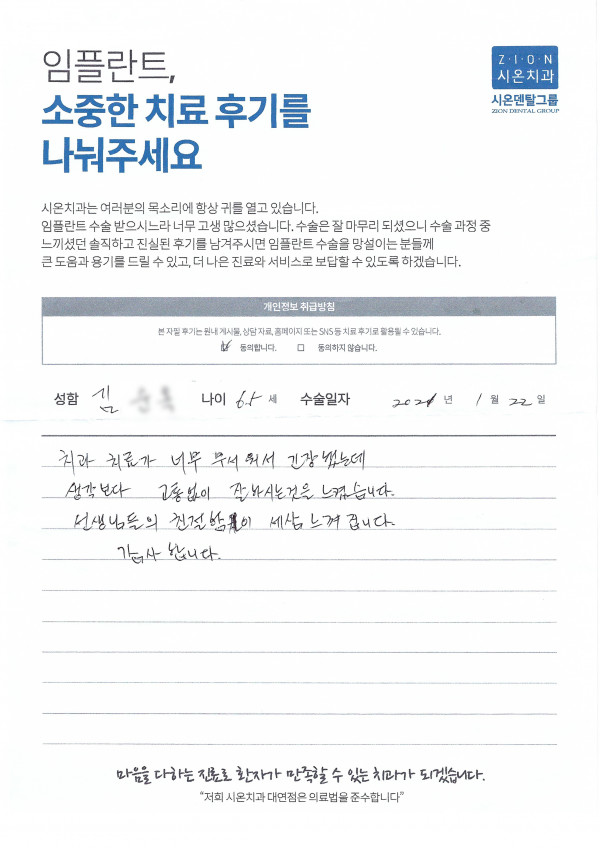 임플란트,
소중한 치료 후기를
나눠주세요
Z·I·O·N
시온치과
시온덴탈그룹
ZION DENTAL GROUP
시온치과는 여러분의 목소리에 항상 귀를 열고 있습니다.
임플란트 수술 받으시느라 너무 고생 많으셨습니다. 수술은 잘 마무리 되셨으니 수술 과정 중
느끼셨던 솔직하고 진실된 후기를 남겨주시면 임플란트 수술을 망설이는 분들께
큰 도움과 용기를 드릴 수 있고, 더 나은 진료와 서비스로 보답할 수 있도록 하겠습니다.
개인정보 취급방침
본 자필 후기는 원내 게시물, 상담 자료, 홈페이지 또는 SNS 등 치료 후기로 활용될 수 있습니다.
동의합니다. 동의하지 않습니다.
성함 김 나이 65 세 수술일자 2021 년 1 월 22 일
치과 치료가 너무 무서워서 긴장했는데
생각보다 고통없이 잘하시는것을 느꼈습니다.
선생님들의 친절함이 세삼 느껴집니다.
감사합니다.
마음을 다하는 진료로 환자가 만족할 수 있는 치과가 되겠습니다.
"저희 시온치과 대연점은 의료법을 준수합니다"